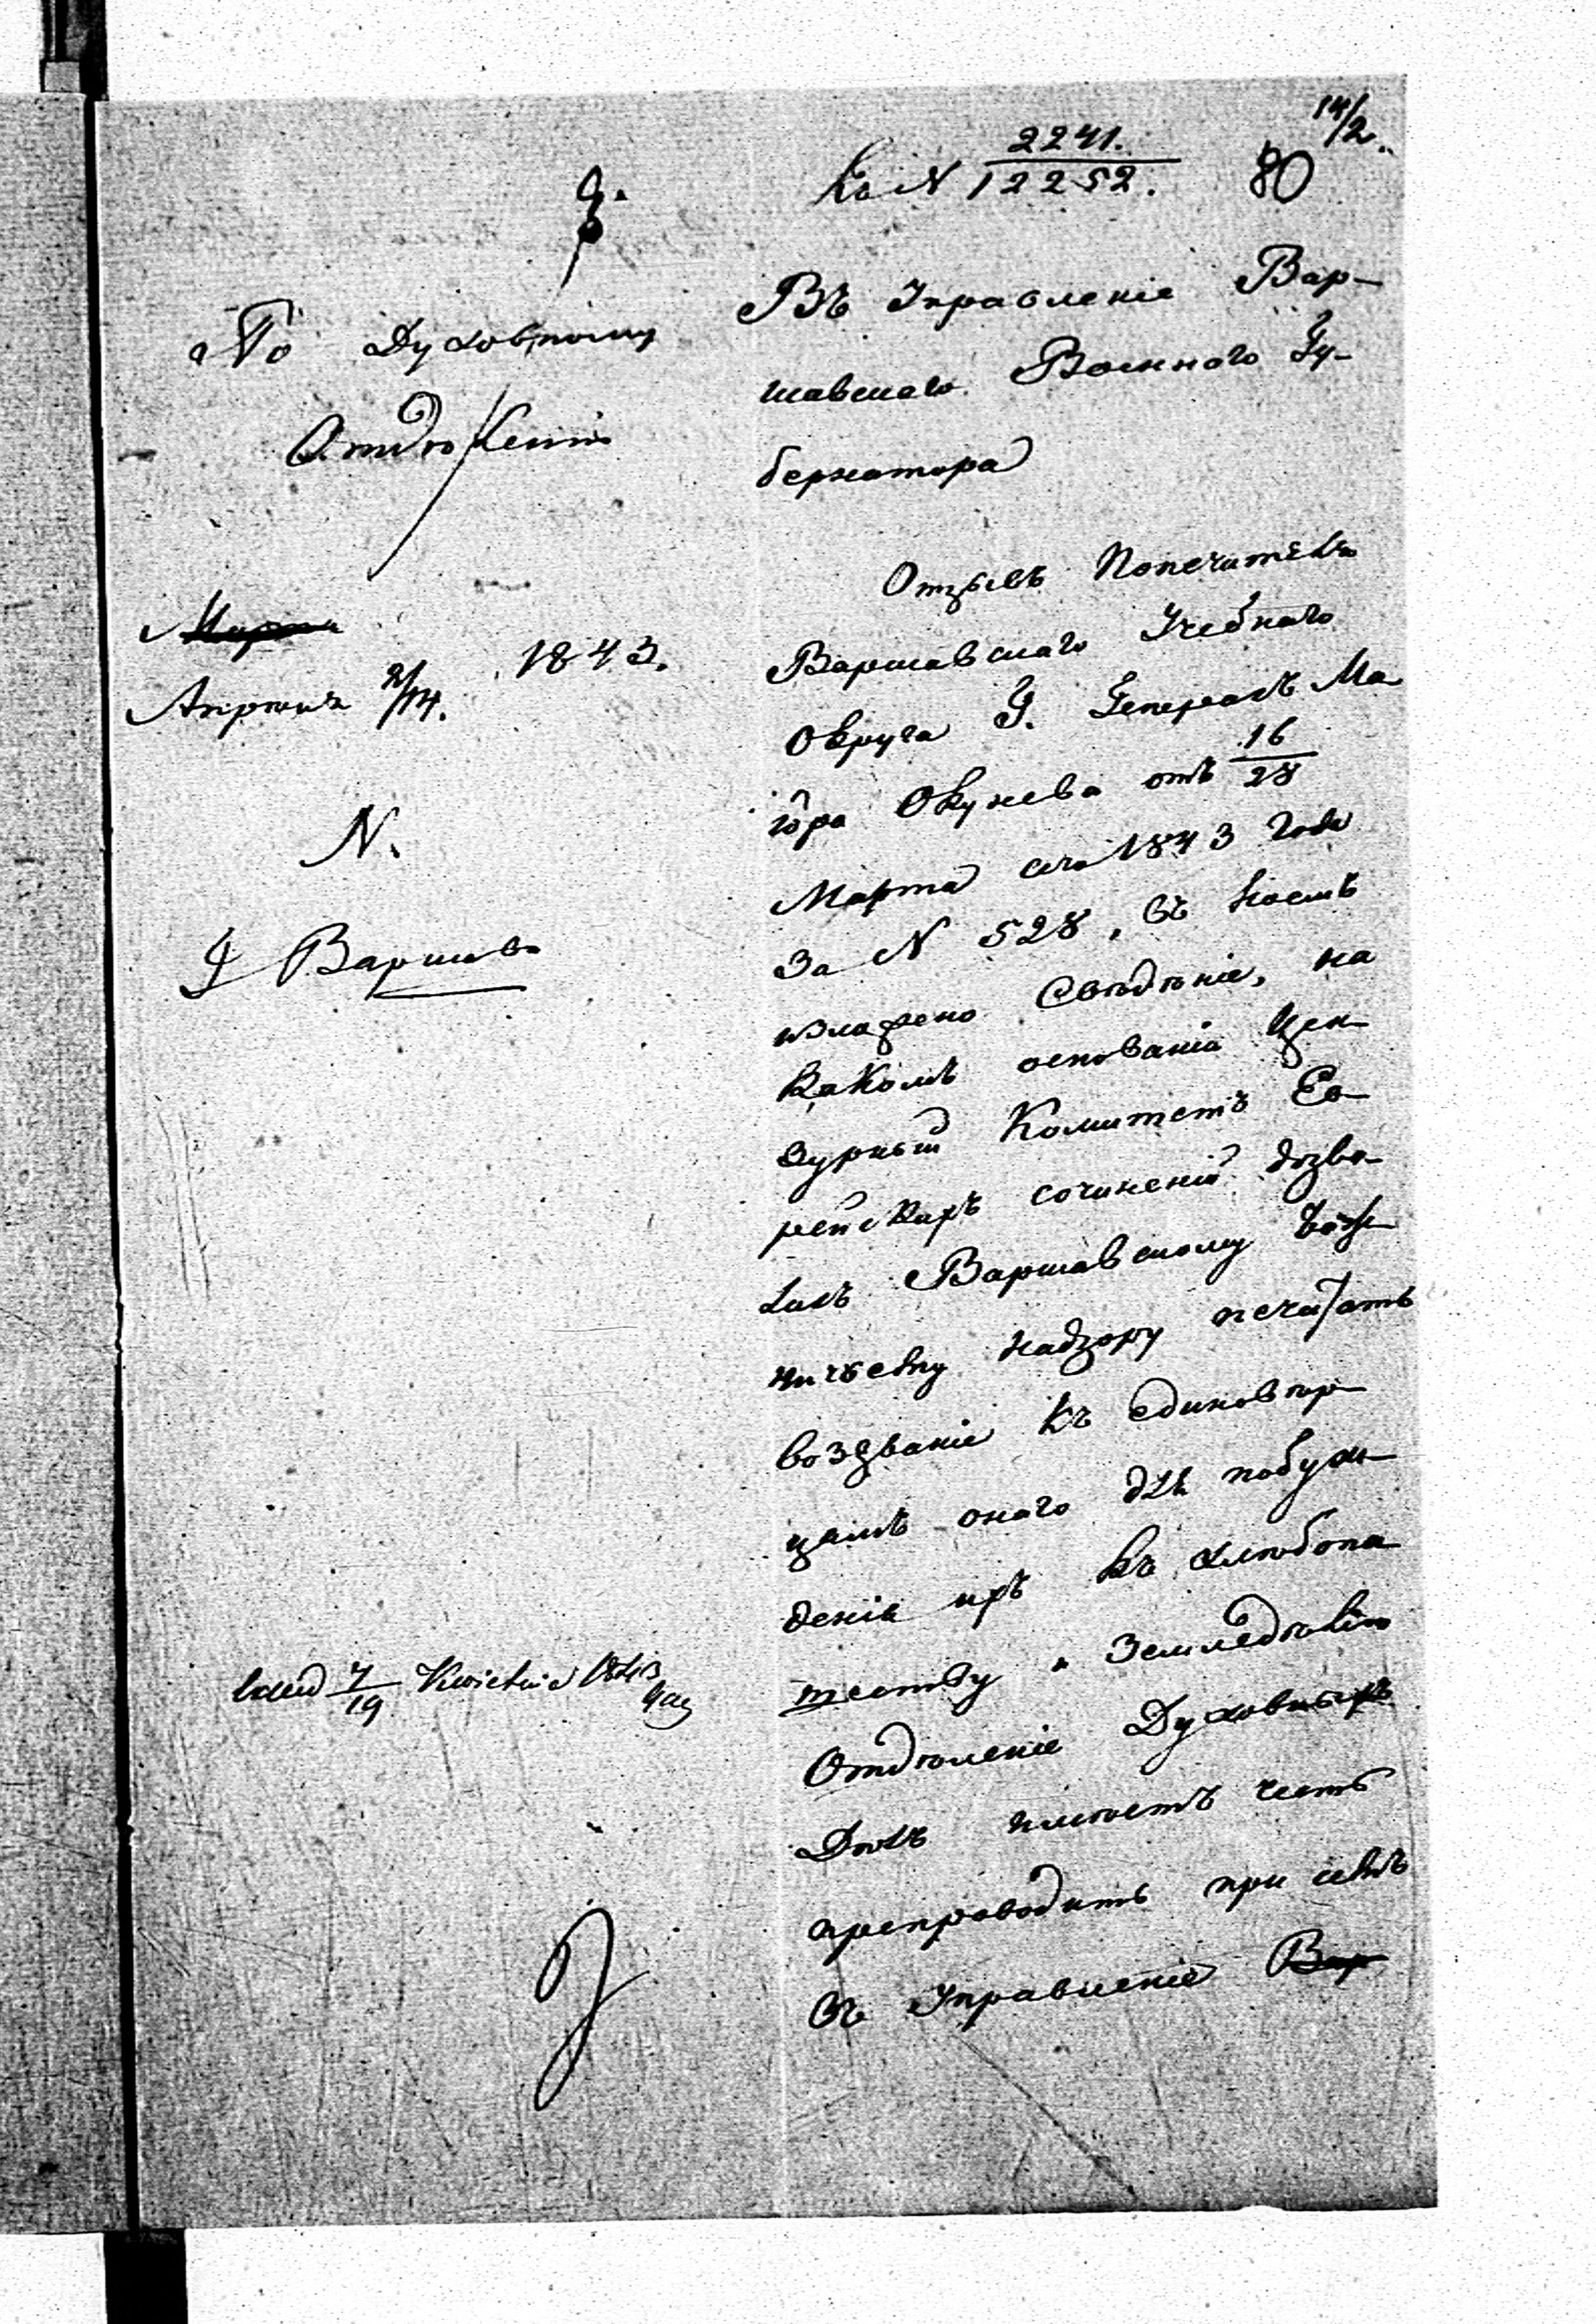 14/2
Къ N 2241. / 12252. 80
По Духовному
Отдѣленію
Марта
Апрѣля 2/14. 1843.
N.
Г Варшава
Въ Управленіе Вар-
шавскаго Военнаго Гу-
бернатора
Отзывъ Попечителя
Варшавскаго Учебнаго
Округа Г. Генералъ Ма
іора Окунева отъ 16/28
Марта сего 1843 года
За N 528, въ коемъ
изложено свѣдѣніе, на
какомъ основаніи Цен-
зурный Комитетъ Ев-
рейскихъ сочиненій дозво-
лилъ Варшавскому Бож-
ничьему надзору печатать
воззваніе къ единовѣр-
цамъ онаго для побуж-
денія ихъ къ хлѣбопа
шеству и Земледѣлію
Отдѣленіе Духовныхъ
Дѣлъ имѣетъ честь
препроводить при семъ
въ Управленіе Вар
7/19 Kwietnia 1843